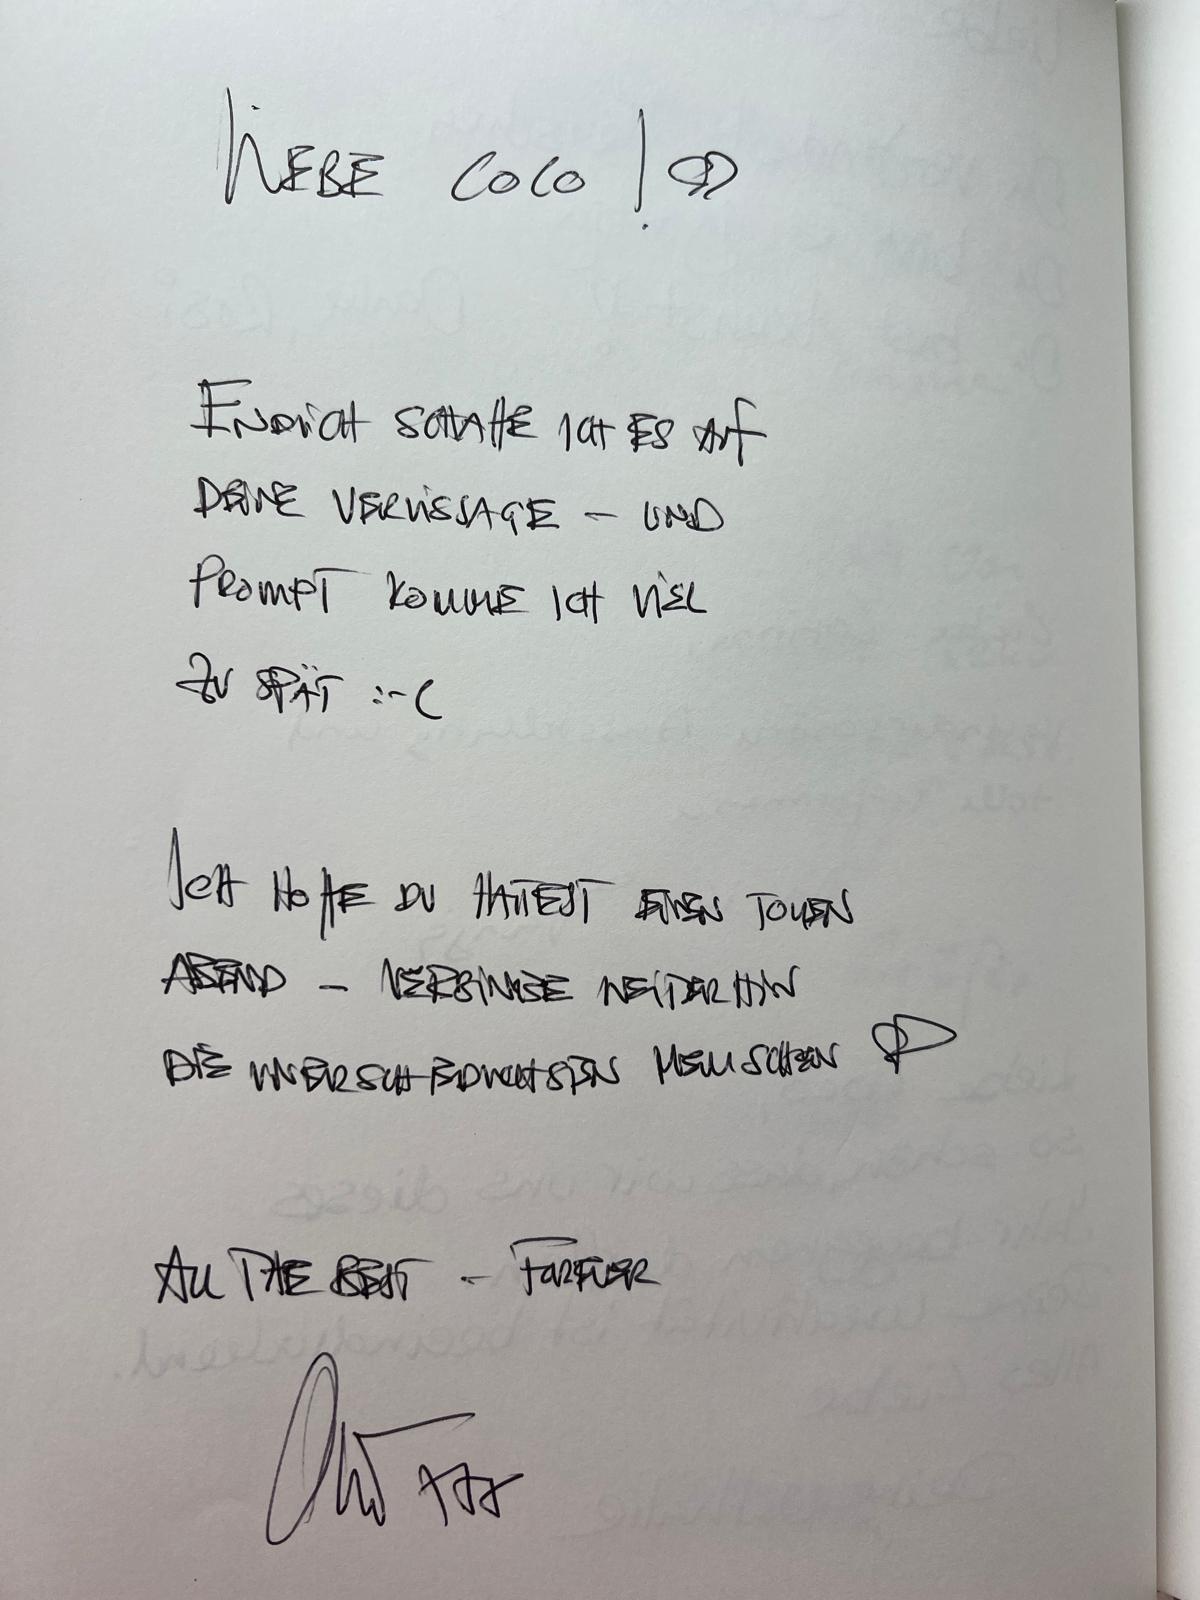 LIEBE COCO!
ENDLICH SCHAFFE ICH ES AUF
DEINE VERNISSAGE – UND
PROMPT KOMME ICH VIEL
ZU SPÄT :-(
ICH HOFFE DU HATTEST EINEN TOLLEN
ABEND – VERBINDE WEITERHIN
DIE UNTERSCHIEDLICHSTEN MENSCHEN
ALL THE BEST – FOREVER
xxx